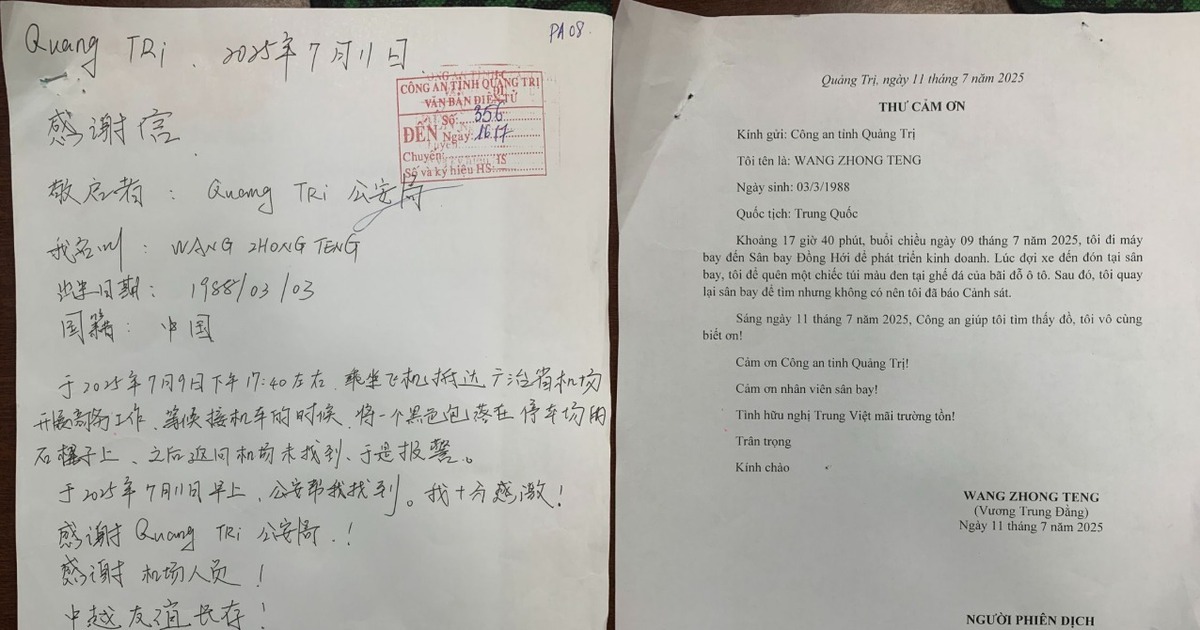 Quang TRi . 2025年7月11日
PA08.
CÔNG AN TỈNH QUẢNG TRỊ
VĂN BẢN ĐIỆN TỬ
ĐẾN
Số: 356
Ngày: 16.17
Chuyển:
Số và ký hiệu HS:
感谢信
敬启者： Quang TRi 公安局
我名叫： WANG ZHONG TENG
出生日期： 1988/03/03
国籍： 中国
于2025年7月9日下午17:40左右、乘坐飞机抵达广治省机场
开展商务工作、等候接机车的时候、将一个黑色包落在停车场的
石櫈子上、之后返回机场未找到、于是报警。
于2025年7月11日早上、公安帮我找到。我十分感激！
感谢 Quang TRi 公安局.！
感谢 机场人员！
中越友谊长存！
Quảng Trị, ngày 11 tháng 7 năm 2025
THƯ CẢM ƠN
Kính gửi: Công an tỉnh Quảng Trị
Tôi tên là: WANG ZHONG TENG
Ngày sinh: 03/3/1988
Quốc tịch: Trung Quốc
Khoảng 17 giờ 40 phút, buổi chiều ngày 09 tháng 7 năm 2025, tôi đi máy
bay đến Sân bay Đồng Hới để phát triển kinh doanh. Lúc đợi xe đến đón tại sân
bay, tôi để quên một chiếc túi màu đen tại ghế đá của bãi đỗ ô tô. Sau đó, tôi quay
lại sân bay để tìm nhưng không có nên tôi đã báo Cảnh sát.
Sáng ngày 11 tháng 7 năm 2025, Công an giúp tôi tìm thấy đồ, tôi vô cùng
biết ơn!
Cảm ơn Công an tỉnh Quảng Trị!
Cảm ơn nhân viên sân bay!
Tình hữu nghị Trung Việt mãi trường tồn!
Trân trọng
Kính chào
WANG ZHONG TENG
(Vương Trung Đằng)
Ngày 11 tháng 7 năm 2025
NGƯỜI PHIÊN DỊCH